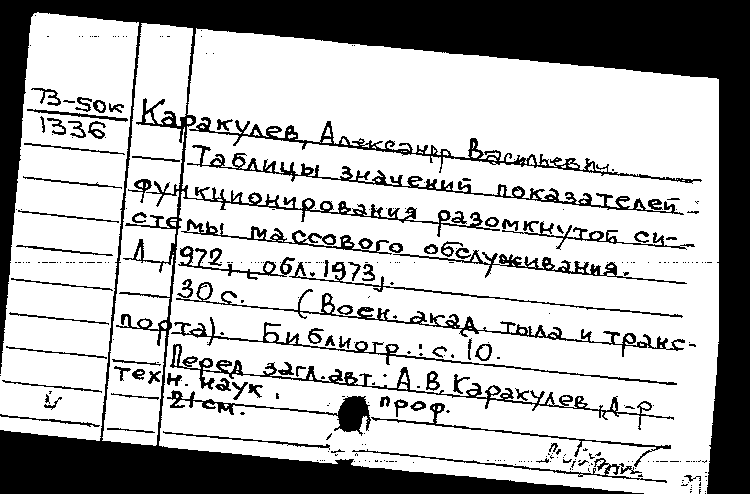 73-50к
1336
Каракулев, Александр Васильевич.
Таблицы значений показателей
функционирования разомкнутой си-
стемы массового обслуживания.
Л., 1972, [обл. 1973].
30 с. (Воен. акад. тыла и транс-
порта). Библиогр.: с. 10.
Перед загл. авт.: А. В. Каракулев, д-р
техн. наук, проф.
21 см.